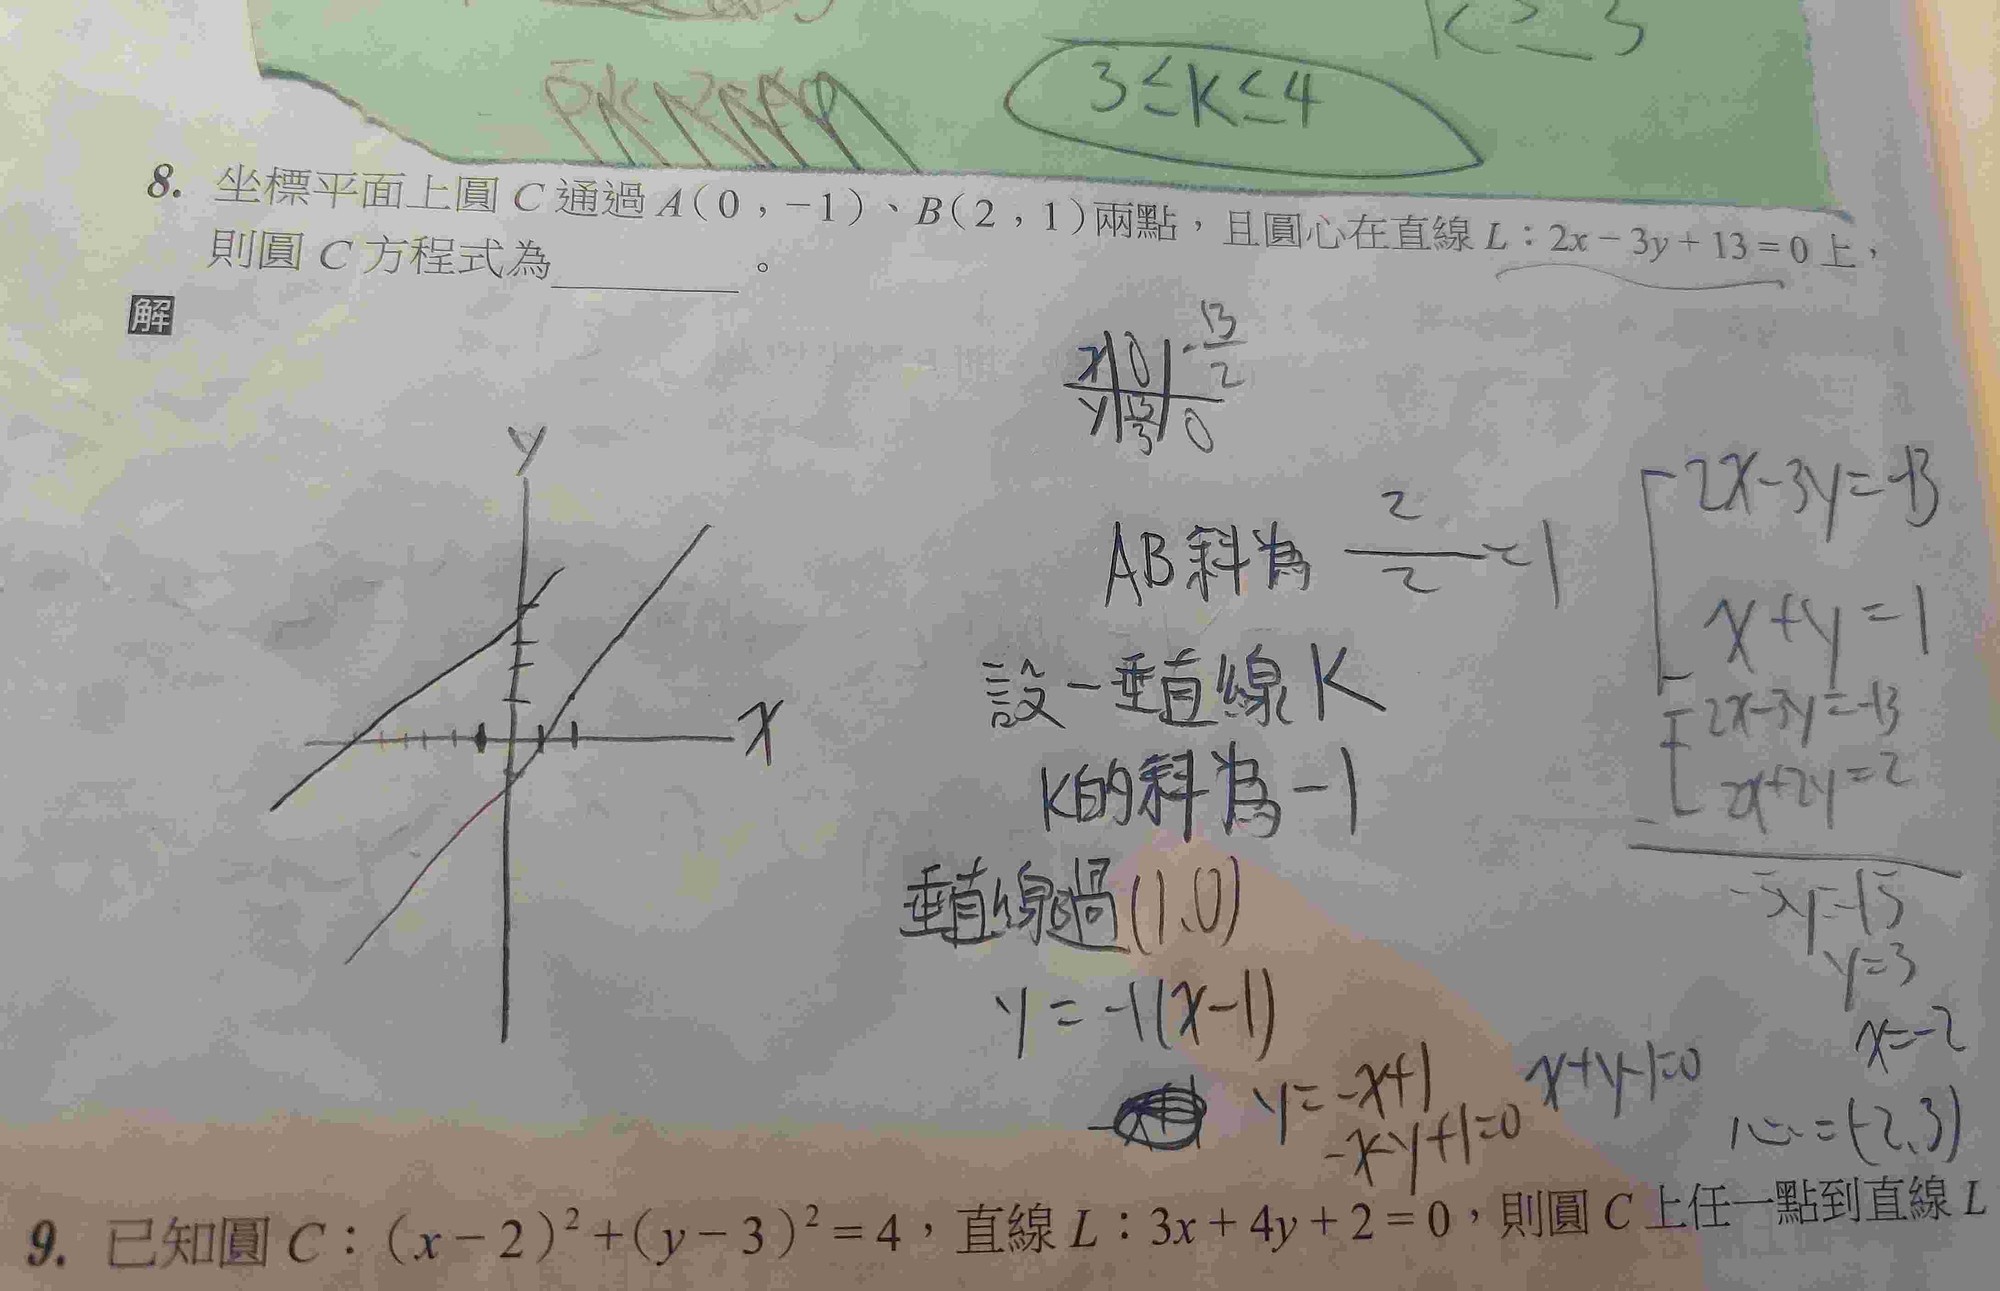 K ≥ 3
3 ≤ K ≤ 4
8. 坐標平面上圓 C 通過 A(0,-1)、B(2,1)兩點,且圓心在直線 L:2x-3y+13=0 上,
則圓 C 方程式為________。
解
x | 0 | -13/2
y | 13/3 | 0
y
x
AB斜為 2/2 = 1
設一垂直線K
K的斜為-1
垂直線過(1,0)
y = -1(x-1)
y = -x+1
-x-y+1=0
x+y-1=0
2x-3y=-13
x+y=1
2x-3y=-13
2x+2y=2
-5y=-15
y=3
x=-2
心=(-2,3)
9. 已知圓 C:(x-2)²+(y-3)²=4,直線 L:3x+4y+2=0,則圓 C 上任一點到直線 L